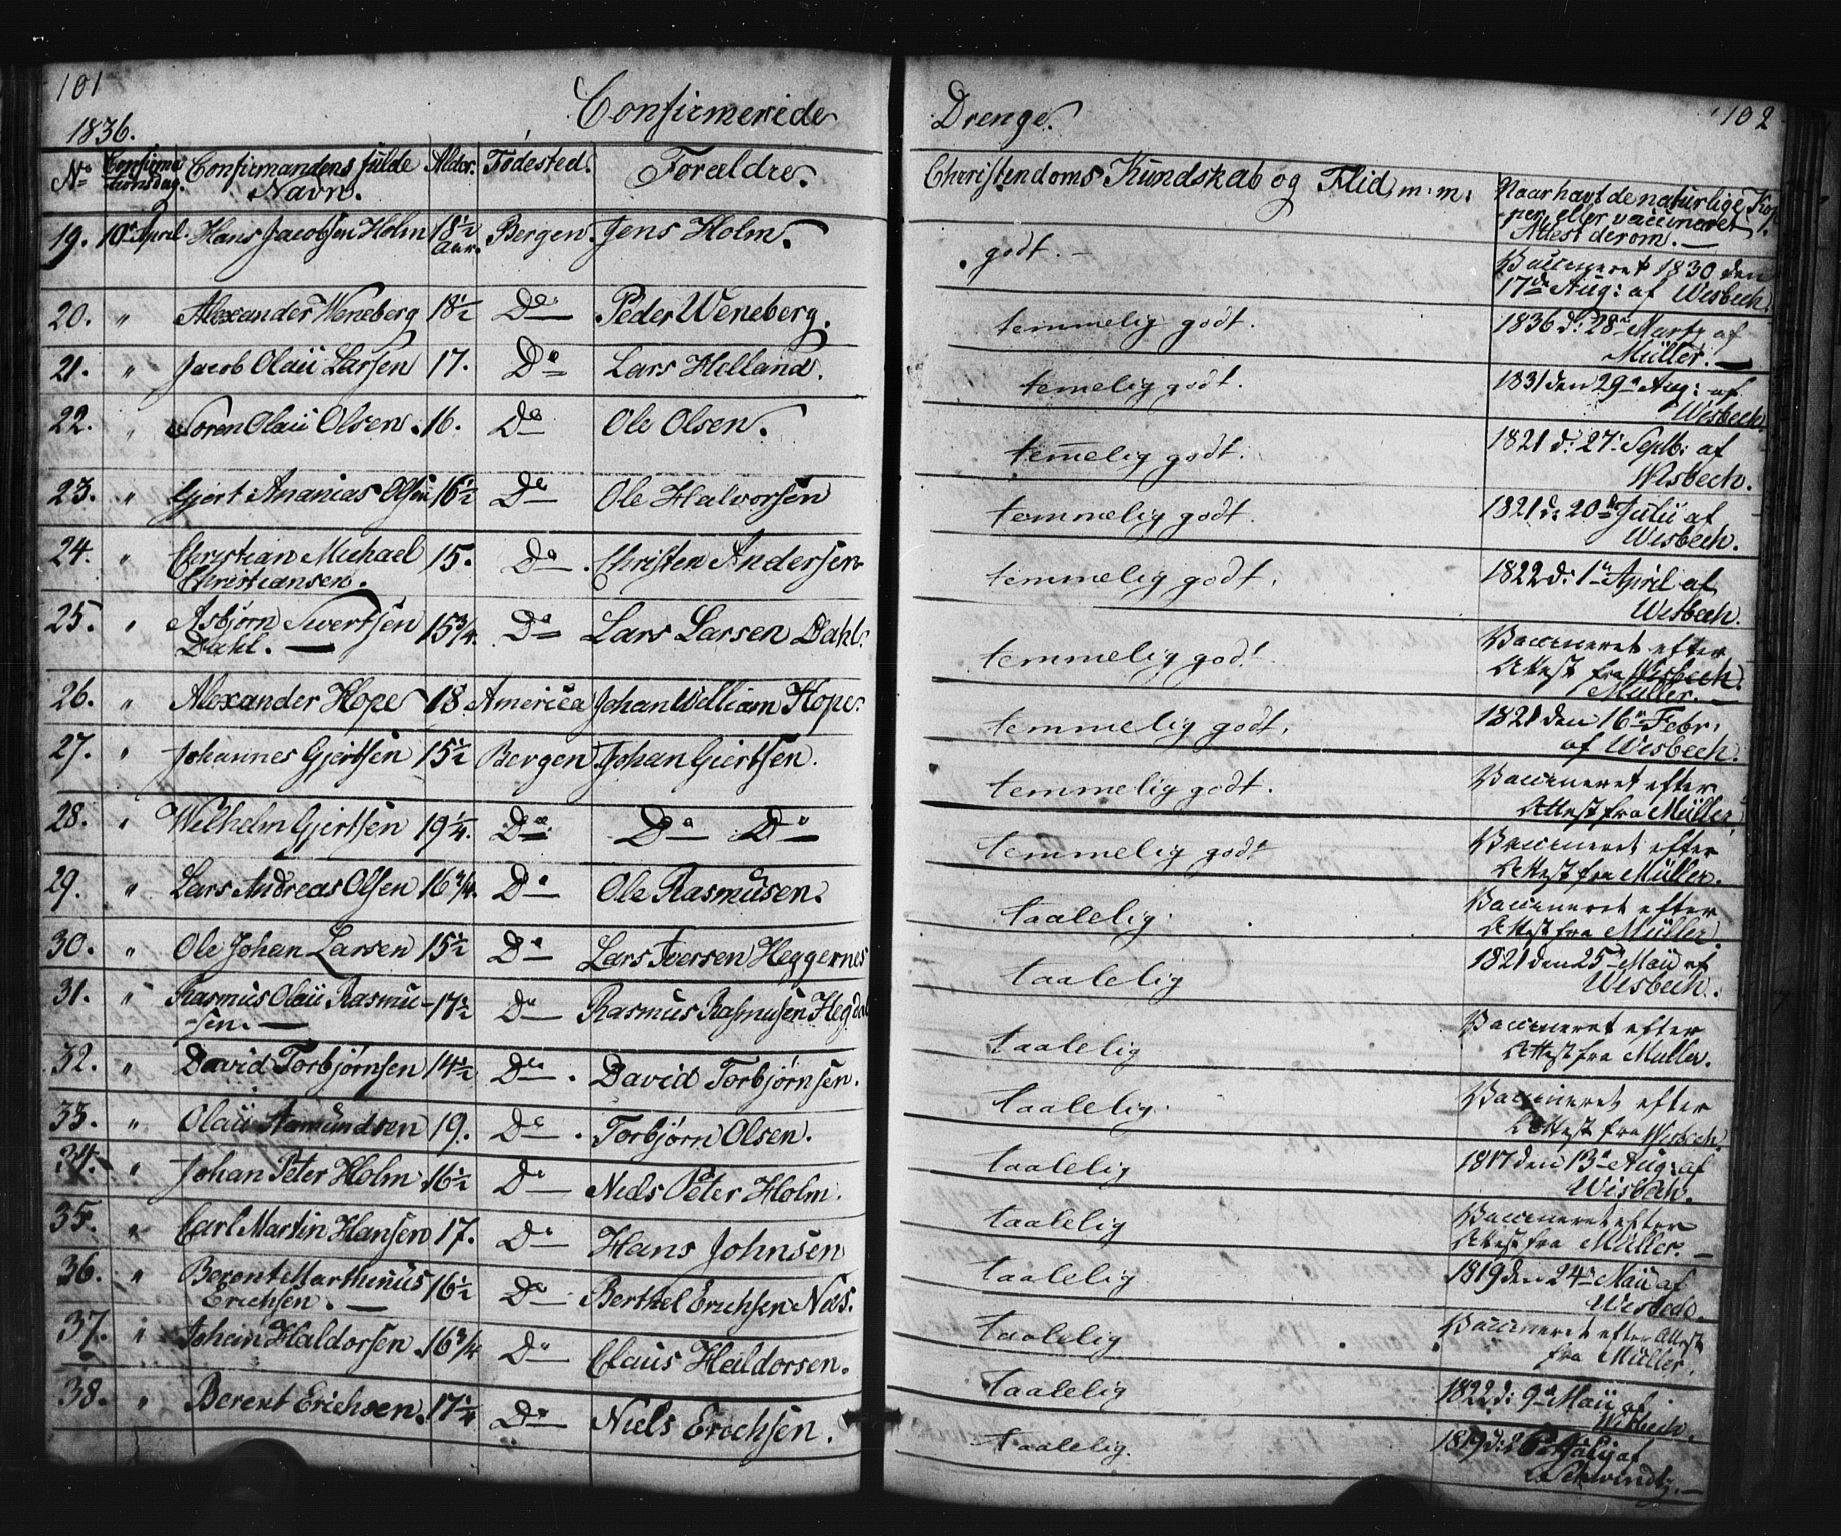 101
1836.
Confirmerede
Drenge.
102
No
Confirma-
tionsdag.
Confirmandens fulde
Navn.
Alder.
Födested.
Forældre.
Christendoms Kundskab og Flid m: m:
Naar havt de naturlige Kop-
per, eller vaccineret
Attest derom. —
19. 10de April. Hans Jacobsen Holm 18½ Aar. Bergen. Jens Holm. godt. — Vaccineret 1830 den
17de Aug: af Wisbech.
20. " Alexander Weneberg 18½ Do Peder Weneberg. temmelig godt. 1836 d: 28de Marty af
Müller. —
21. " Jacob Olaii Larsen 17. Do Lars Helland. temelig godt. 1831 den 29de Aug: af
Wisbech.
22. " Sören Olaii Olsen. 16. Do Ole Olsen. temelig godt. 1821 d: 27de Septb: af
Wisbech.
23. " Gjert Ananias Olsen 16½ Do Ole Halvorsen temmelig godt. 1821 d: 20de Julii af
Wisbech.
24. " Christian Michael
Christiansen. 15. Do Christen Andersen temmelig godt. 1822 d: 1ste April af
Wisbech.
25. " Asbjörn Sivertsen
Dahl. — 15¾. Do Lars Larsen Dahl. temmelig godt Vaccineret efter
Attest fra Wisbech.
Müller.
26. " Alexander Hope 18 America Johan William Hope temmelig godt. 1821 den 16de Febr:
af Wisbech.
27. " Johannes Gjertsen 15½ Bergen. Johan Giertsen. temmelig godt. Vaccineret efter
Attest fra Müller.
28. " Wilhelm Gjertsen 19¼. Do Do Do temmelig godt Vaccineret efter
Attest fra Müller.
29. " Lars Andreas Olsen 16¾. Do Ole Rasmusen. taalelig. Vaccineret efter
Attest fra Müller.
30. " Ole Johan Larsen 15½ Do Lars Iversen Heggernes taalelig 1821 den 25de Maii af
Wisbech.
31. " Rasmus Olaii Rasmu-
-sen. — 17½ Do Rasmus Rasmusen Hegdal taalelig Vaccineret efter
Attest fra Müller.
32. " David Torbjörnsen 14½ Do David Torbjörnsen. taalelig. Vaccineret efter
Attest fra Wisbech.
33. " Olaii Asmundsen 19. Do Torbjörn Olsen. taalelig 1817 den 13de Aug: af
Wisbech.
34. " Johan Peter Holm 16½ Do Niels Peter Holm. taalelig Vaccineret efter
Attest fra Müller. —
35. " Carl Martin Hansen 17. Do Hans Johnsen taalelig 1819 den 24de Maii af
Wisbech.
36. " Berent Marthinus
Erichsen. — 16½ Do Berthel Erichsen Næs. taalelig Vaccineret efter Attest
fra Müller.
37. " Johan Haldorsen 16¾ Do Claus Haldorsen. taalelig 1822 d: 9de Maii af
Wisbech.
38. " Berent Erichsen. 17¼ Do Niels Erichsen. taalelig. 1819 d: af
Schwindt. —